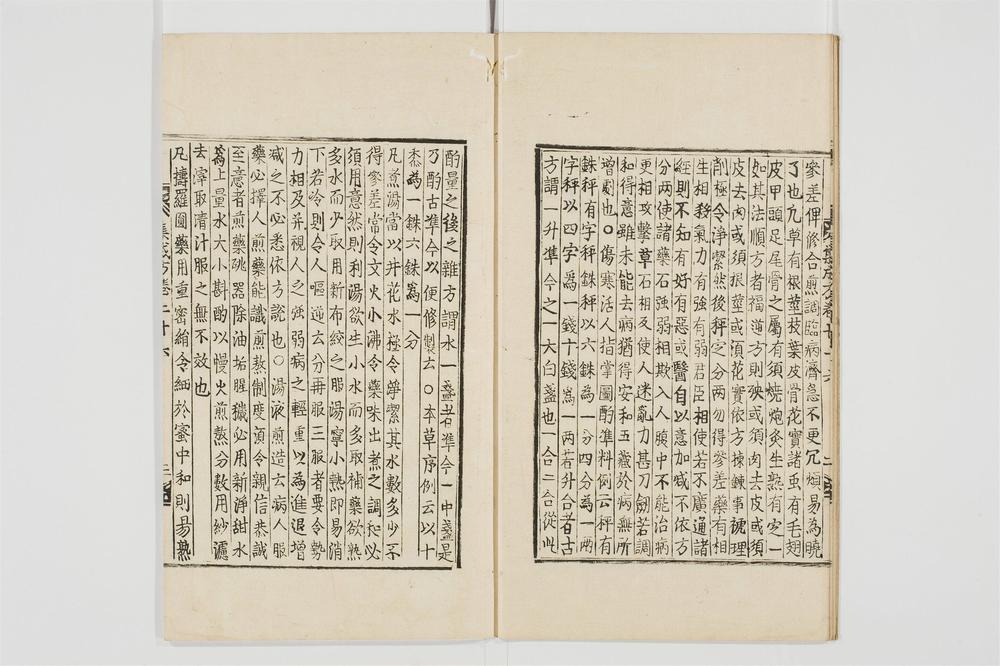 參差俾修合煎調臨病濟急不更冗煩易為曉
了也九草有根莖枝葉皮骨花實諸䖝有毛翅
皮甲頭足尾骨之屬有須燒炮灸生熟有定一
如其法順方者福逆方則殃或須肉去皮或須
皮去肉或須根莖或須花實依方揀事䟽理
削極令淨潔然後秤定分兩勿得參差藥有相
生相殺氣力有強有弱君臣相使若不廣通諸
經則不知有好有惡或醫自以意加減不依方
分兩使諸藥石強弱相欺入人腹中不能治病
更相攻擊草石相反使人迷亂力甚刀劒若調
和得意雖未能去病猶得安和五藏於病無所
增劇也○傷寒活人指掌圖酌準料例云秤有
銖秤有字秤銖秤以六銖為一分四分為一兩
字秤以四字爲一錢十錢爲一兩若升合者古
方謂一升準今之一大白盞也一合二合從此
酌量之後之雜方謂水一盞者準今一中盞是
乃酌古準今以便修製云○本草序例云以十
黍為一銖六銖爲一分
凡煎湯當以井花水極令淨潔其水數多少不
得參差常令文火小沸令藥味出煮之調和必
須用意然則利湯欲生小水而多取補藥欲熟
多水而少取用新布絞之服湯寧小熱即易消
下若冷則令人嘔逆云分再服三服者要令勢
力相及并視人之強弱病之輕重以為進退增
減之不必悉依方說也○湯液煎造云病人服
藥必擇人煎藥能識煎熬制度須令親信恭誠
至意者煎藥銚器除油垢腥穢必用新淨甜水
爲上量水大小斟酌以慢火煎熬分數用紗濾
去滓取清汁服之無不效也
凡擣羅圓藥用重密絹令細於蜜中和則易熟
集成方卷二十六
二